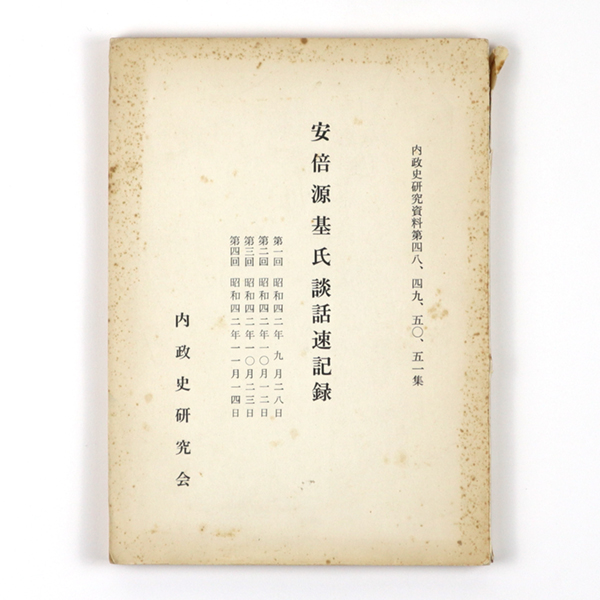 内政史研究資料第四八、四九、五〇、五一集
安倍源基氏談話速記録
第一回 昭和四二年 九 月二八日
第二回 昭和四二年一〇月一二日
第三回 昭和四二年一〇月二三日
第四回 昭和四二年一一月一四日
内政史研究会